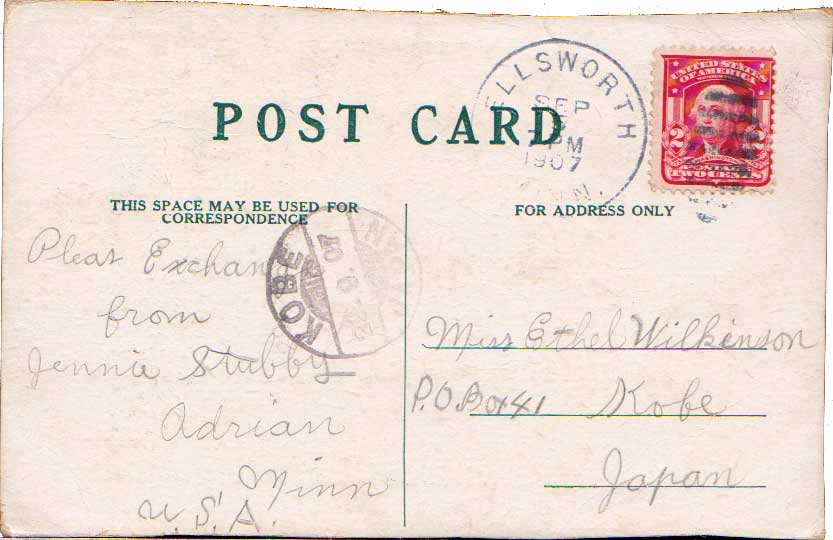 POST CARD
ELLSWORTH
SEP
PM
1907
UNITED STATES
OF AMERICA
2 2
POSTAGE
TWO CENTS
THIS SPACE MAY BE USED FOR
CORRESPONDENCE
FOR ADDRESS ONLY
KOBE
Pleas Exchang
from
Jennie Stubby
Adrian
Minn
U.S.A.
Miss Ethel Wilkinson
P.O.Box 41 Kobe
Japan